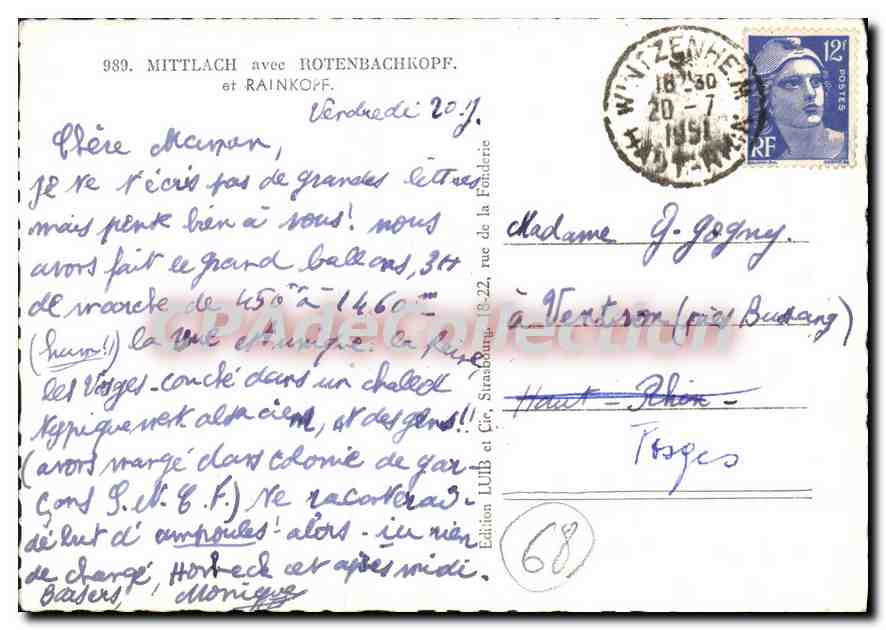 989. MITTLACH avec ROTENBACHKOPF.
et RAINKOPF.
Vendredi 20.7.
Chère Maman,
Je ne t'écris pas de grandes lettres
mais pense bien à vous! nous
avons fait le grand ballons, 3H
de marche de 450m à 1460m
(hum!!) la vue est unique. la
les Vosges. couché dans un challet
typiquement alsacien, et des gens!!
(avons mangé dans colonie de gar-
çons S.N.C.F.) Ne raconterai
début d'ampoules! alors. ici rien
de changé, Horbeck cet après midi.
Baisers, Monique
Edition LUIB et Cie, Strasbourg, 18-22, rue de la Fonderie
WINTZENHEIM
18H30
20-7
1951
HAUT-RHIN
12F
POSTES
RF
Madame G. Gogny.
à Ventron (près Bussang)
Haut-Rhin-
Vosges
68
CPAdeCollection